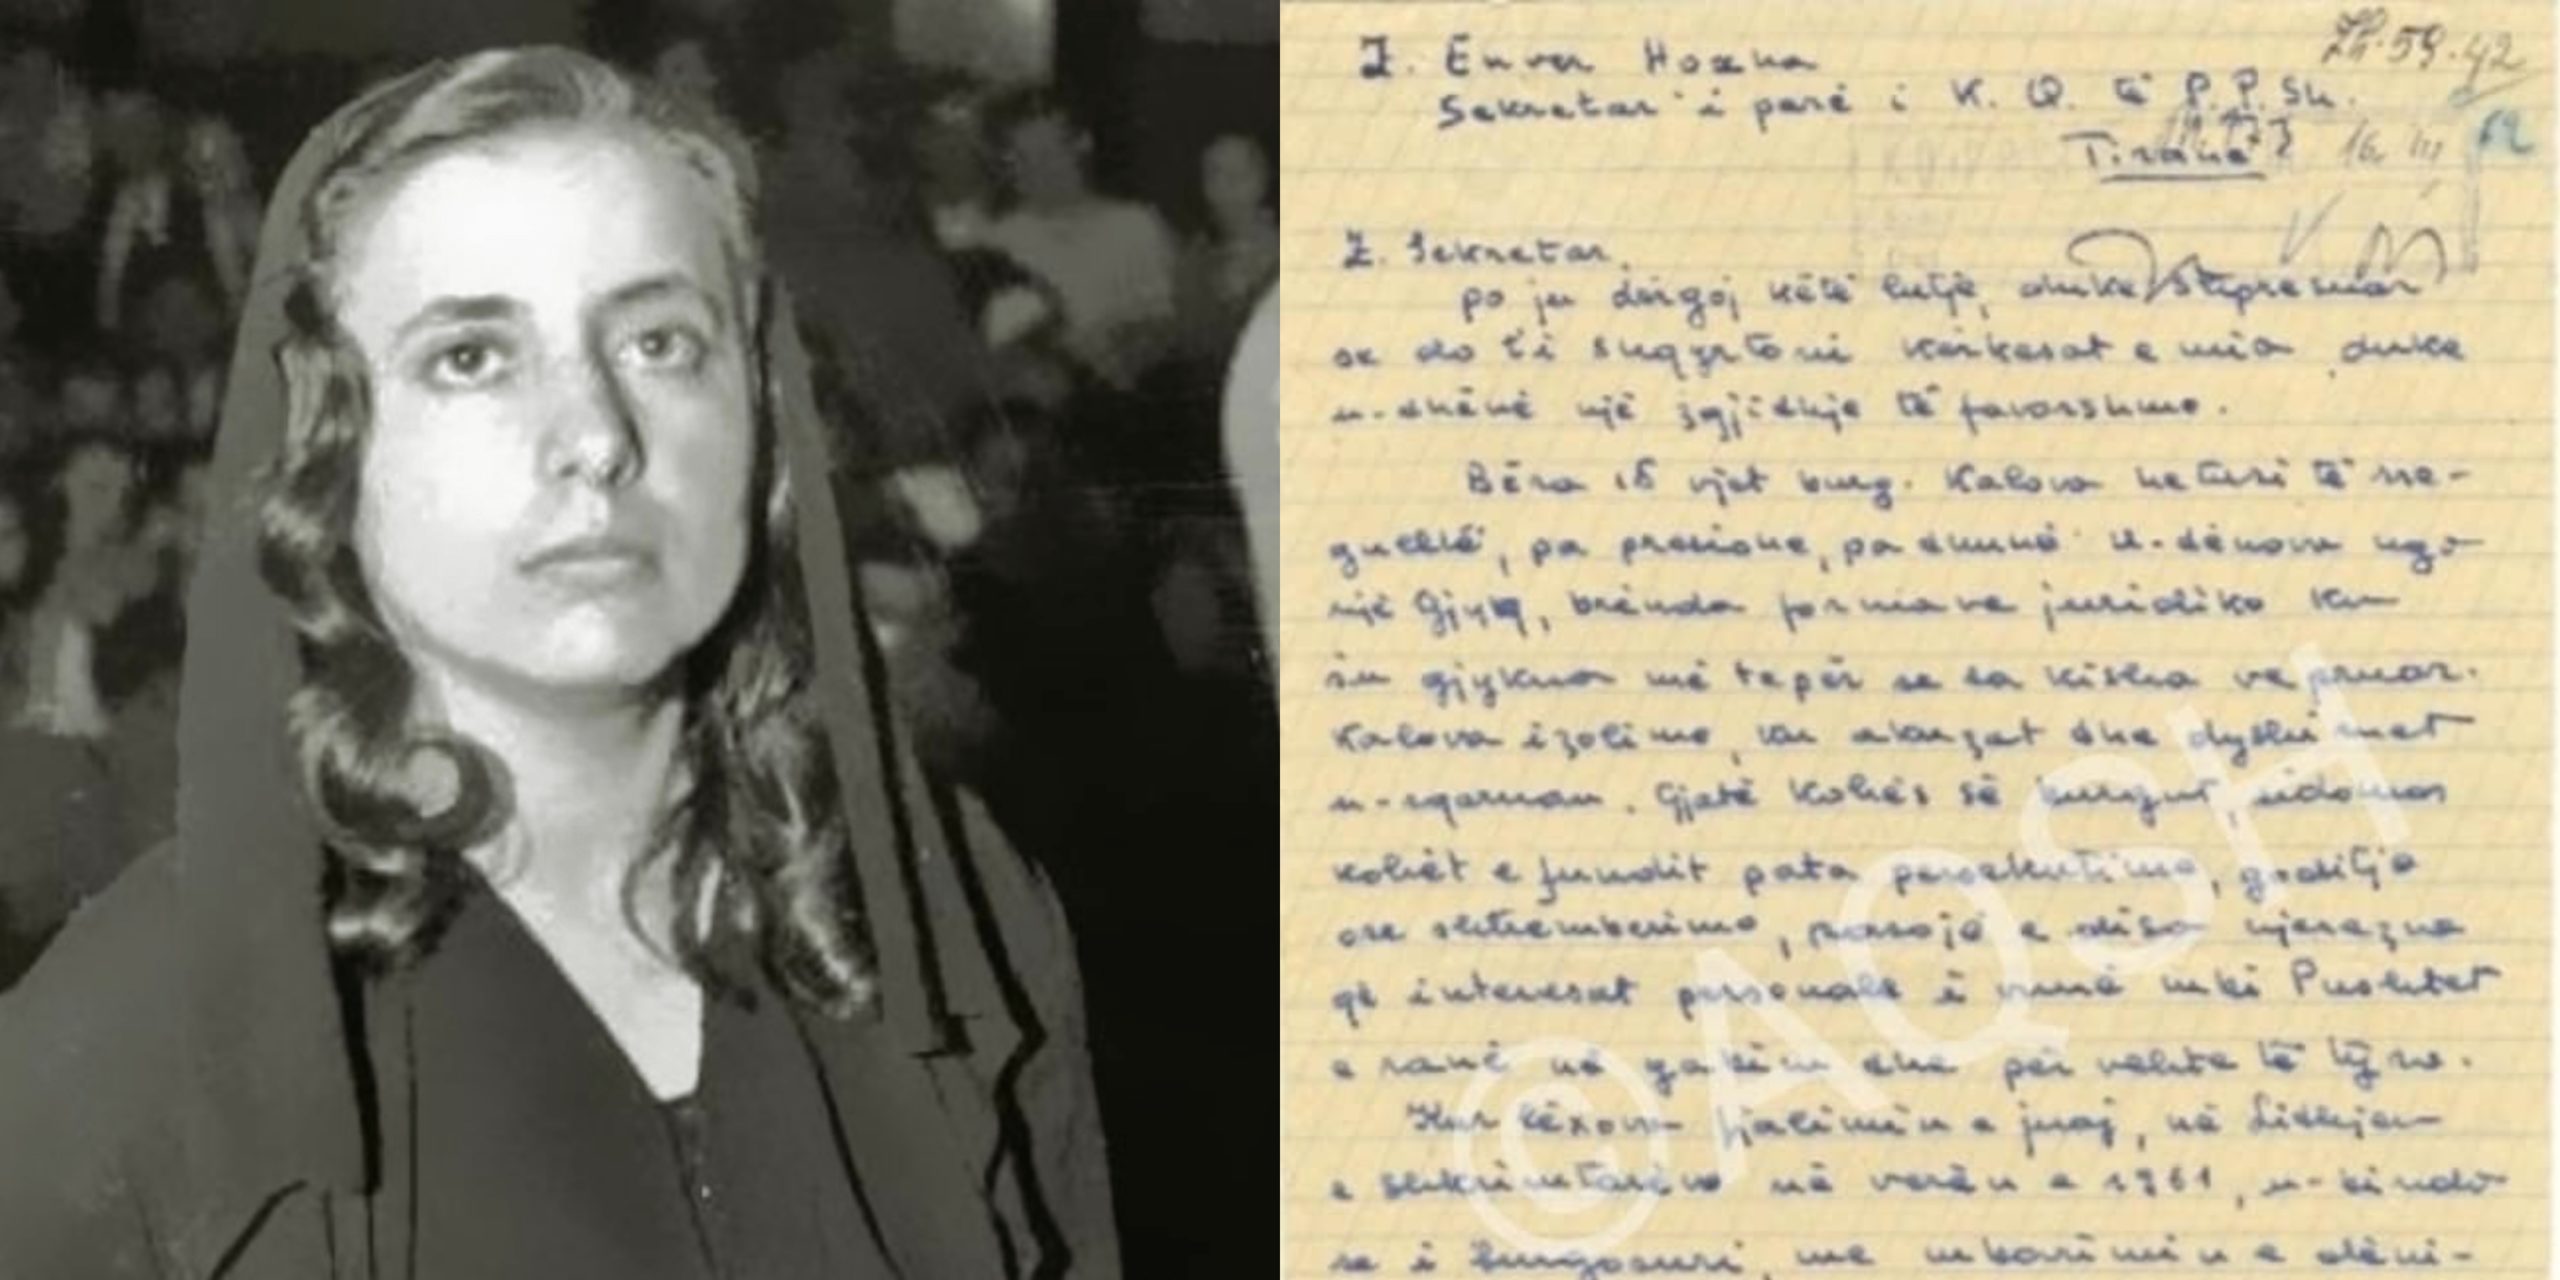 Z. Enver Hoxha
Sekretar i parë i K. Q. të P.P.Sh.
Tiranë
Z. Sekretar,
po ju dërgoj këtë lutje, duke shpresuar
se do t'i shqyrtoni kërkesat e mia, duke
u-dhënë një zgjidhje të favorshme.
Bëra 15 vjet burg. Kalova hetusi të rre-
gulltë, pa presione, pa dhunë. U-dënova nga
një Gjyq, brënda formave juridike ku
su gjykua më tepër se sa kisha vepruar.
Kalova izolime, ku akuzat dhe dyshimet
u-sqaruan. Gjatë kohës së burgut, sidomos
kohët e fundit pata persekutime, goditje
ose shtrembërime, pasojë e disa njerëzve
që interesat personale i vunë mbi Pushtet
e ranë në gabim dhe për vehte të tyre.
Kur lëxova fjalimin e juaj, në Lidhjen
e shkrimtarëve në verën e 1961, u-binda
se i burgosuri, me mbarimin e dëni-
©AQSH